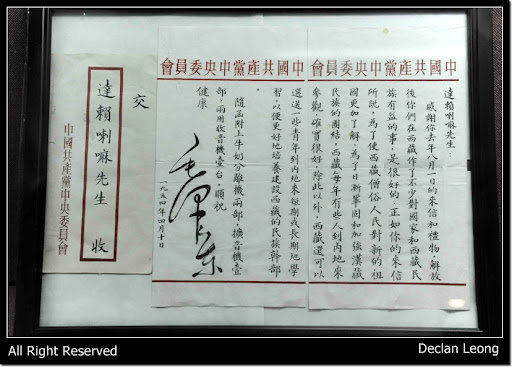 中國共產黨中央委員會
達賴喇嘛先生：
感謝你去年八月一日的來信和禮物，解放
後你們在西藏作了不少對國家和西藏民
族有益的事，是很好的，正如你的來信
所說，為了使西藏僧俗人民對新的祖
國更加了解，為了日漸鞏固和加強漢藏
民族的團結，西藏每年有些人到內地來
參觀，確實很好，除此以外，西藏還可以
中國共產黨中央委員會
選送一些青年到內地來短期或長期地學
習，以便更好地培養建設西藏的民族幹部
隨函附上牛奶分離機兩部，擴音機壹
部，兩用收音機壹台，順祝
健康
毛澤東
一九五四年四月十日
交
達賴喇嘛先生 收
中國共產黨中央委員會
All Right Reserved
Declan Leong